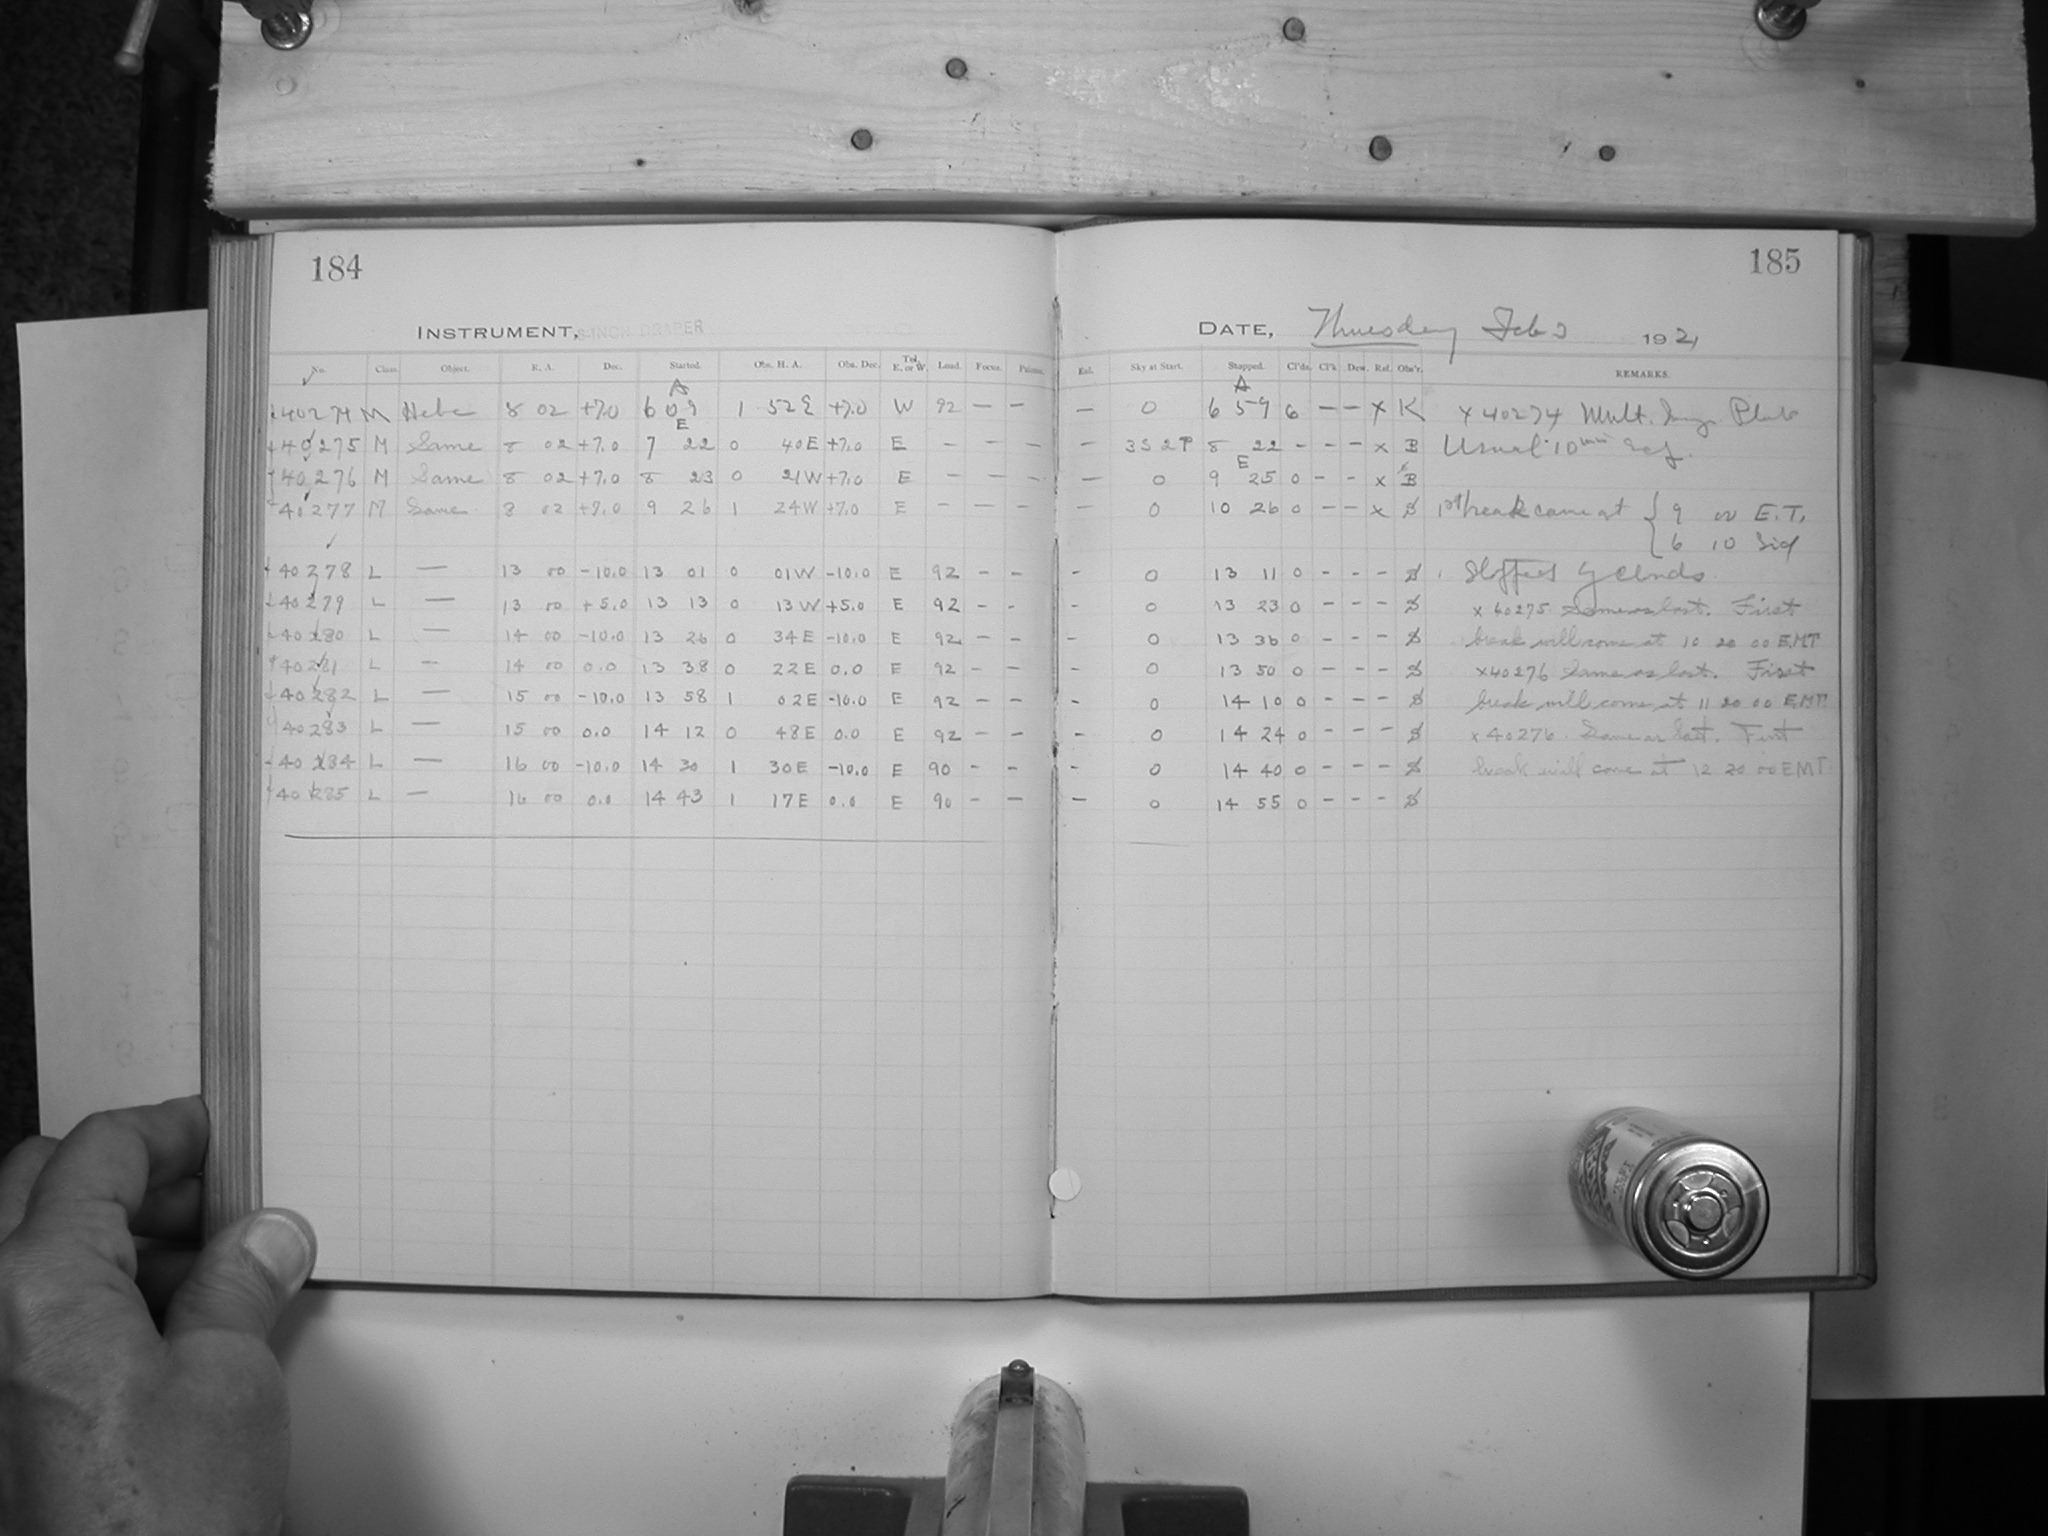 184
INSTRUMENT, 8-INCH DRAPER
No. Class. Object. R. A. Dec. Started. Obs. H. A. Obs. Dec. Tel. E. or W. Load. Focus.
40274 M Hebe 8 02 +7.0 6 09 1 52 E +7.0 W 92 — —
40275 M Same 8 02 +7.0 7 22 0 40 E +7.0 E — — —
40276 M Same 8 02 +7.0 8 23 0 21 W +7.0 E — — —
40277 M Same 8 02 +7.0 9 26 1 24 W +7.0 E — — —
40278 L — 13 00 -10.0 13 01 0 01 W -10.0 E 92 - -
40279 L — 13 00 +5.0 13 13 0 13 W +5.0 E 92 - -
40280 L — 14 00 -10.0 13 26 0 34 E -10.0 E 92 - -
40281 L — 14 00 0.0 13 38 0 22 E 0.0 E 92 - -
40282 L — 15 00 -10.0 13 58 1 02 E -10.0 E 92 - -
40283 L — 15 00 0.0 14 12 0 48 E 0.0 E 92 - -
40284 L — 16 00 -10.0 14 30 1 30 E -10.0 E 90 - -
40285 L — 16 00 0.0 14 43 1 17 E 0.0 E 90 - -
185
DATE, Thursday Feb 3 1921
Ext. Sky at Start. Stopped. Cl'ds. Cl'k. Dew. Ref. Obs'r. REMARKS.
A
— 0 6 59 6 — — x K x 40274 Mult. Plate
— 3S 2P 8 22 - - - x B Usual 10 min
E
— 0 9 25 0 - - x B
— 0 10 26 0 - - x 1st break came at { 9 E.T.
6 10 Sid
- 0 13 11 0 - - - Stopped by Clouds
- 0 13 23 0 - - - x 40275 Same as last. First
- 0 13 36 0 - - - break will come at 10 20 00 E.M.T
- 0 13 50 0 - - - x 40276 Same as last. First
- 0 14 10 0 - - - break will come at 11 20 00 E.M.T.
- 0 14 24 0 - - - x 40276 Same as last. First
- 0 14 40 0 - - - break will come at 12 20 00 EMT
- 0 14 55 0 - - -